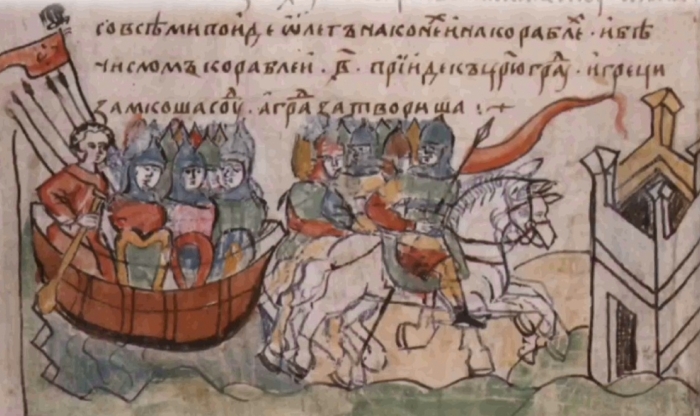 со всѣми поиде ѡлегъ на конеⷯ и на кораблеⷯ · и бѣ
числомъ кораблей · в҃ · прїиде къ црю граⷣ · и греци
замкоша соуⷣ · а граⷣ затвориша :·